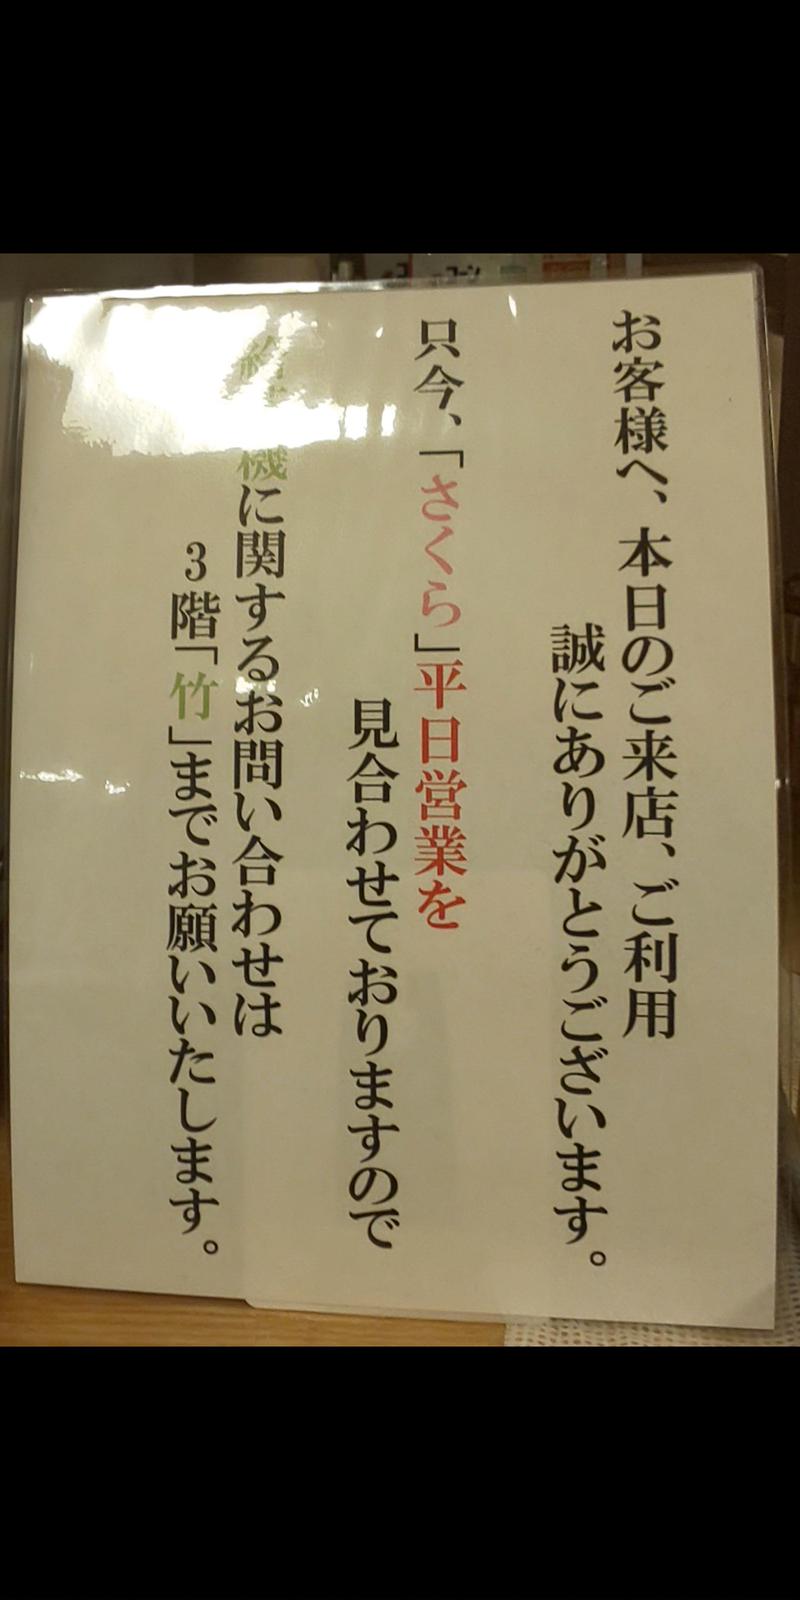 お客様へ、本日のご来店、ご利用
誠にありがとうございます。
只今、「さくら」平日営業を
見合わせておりますので
機に関するお問い合わせは
3階「竹」までお願いいたします。